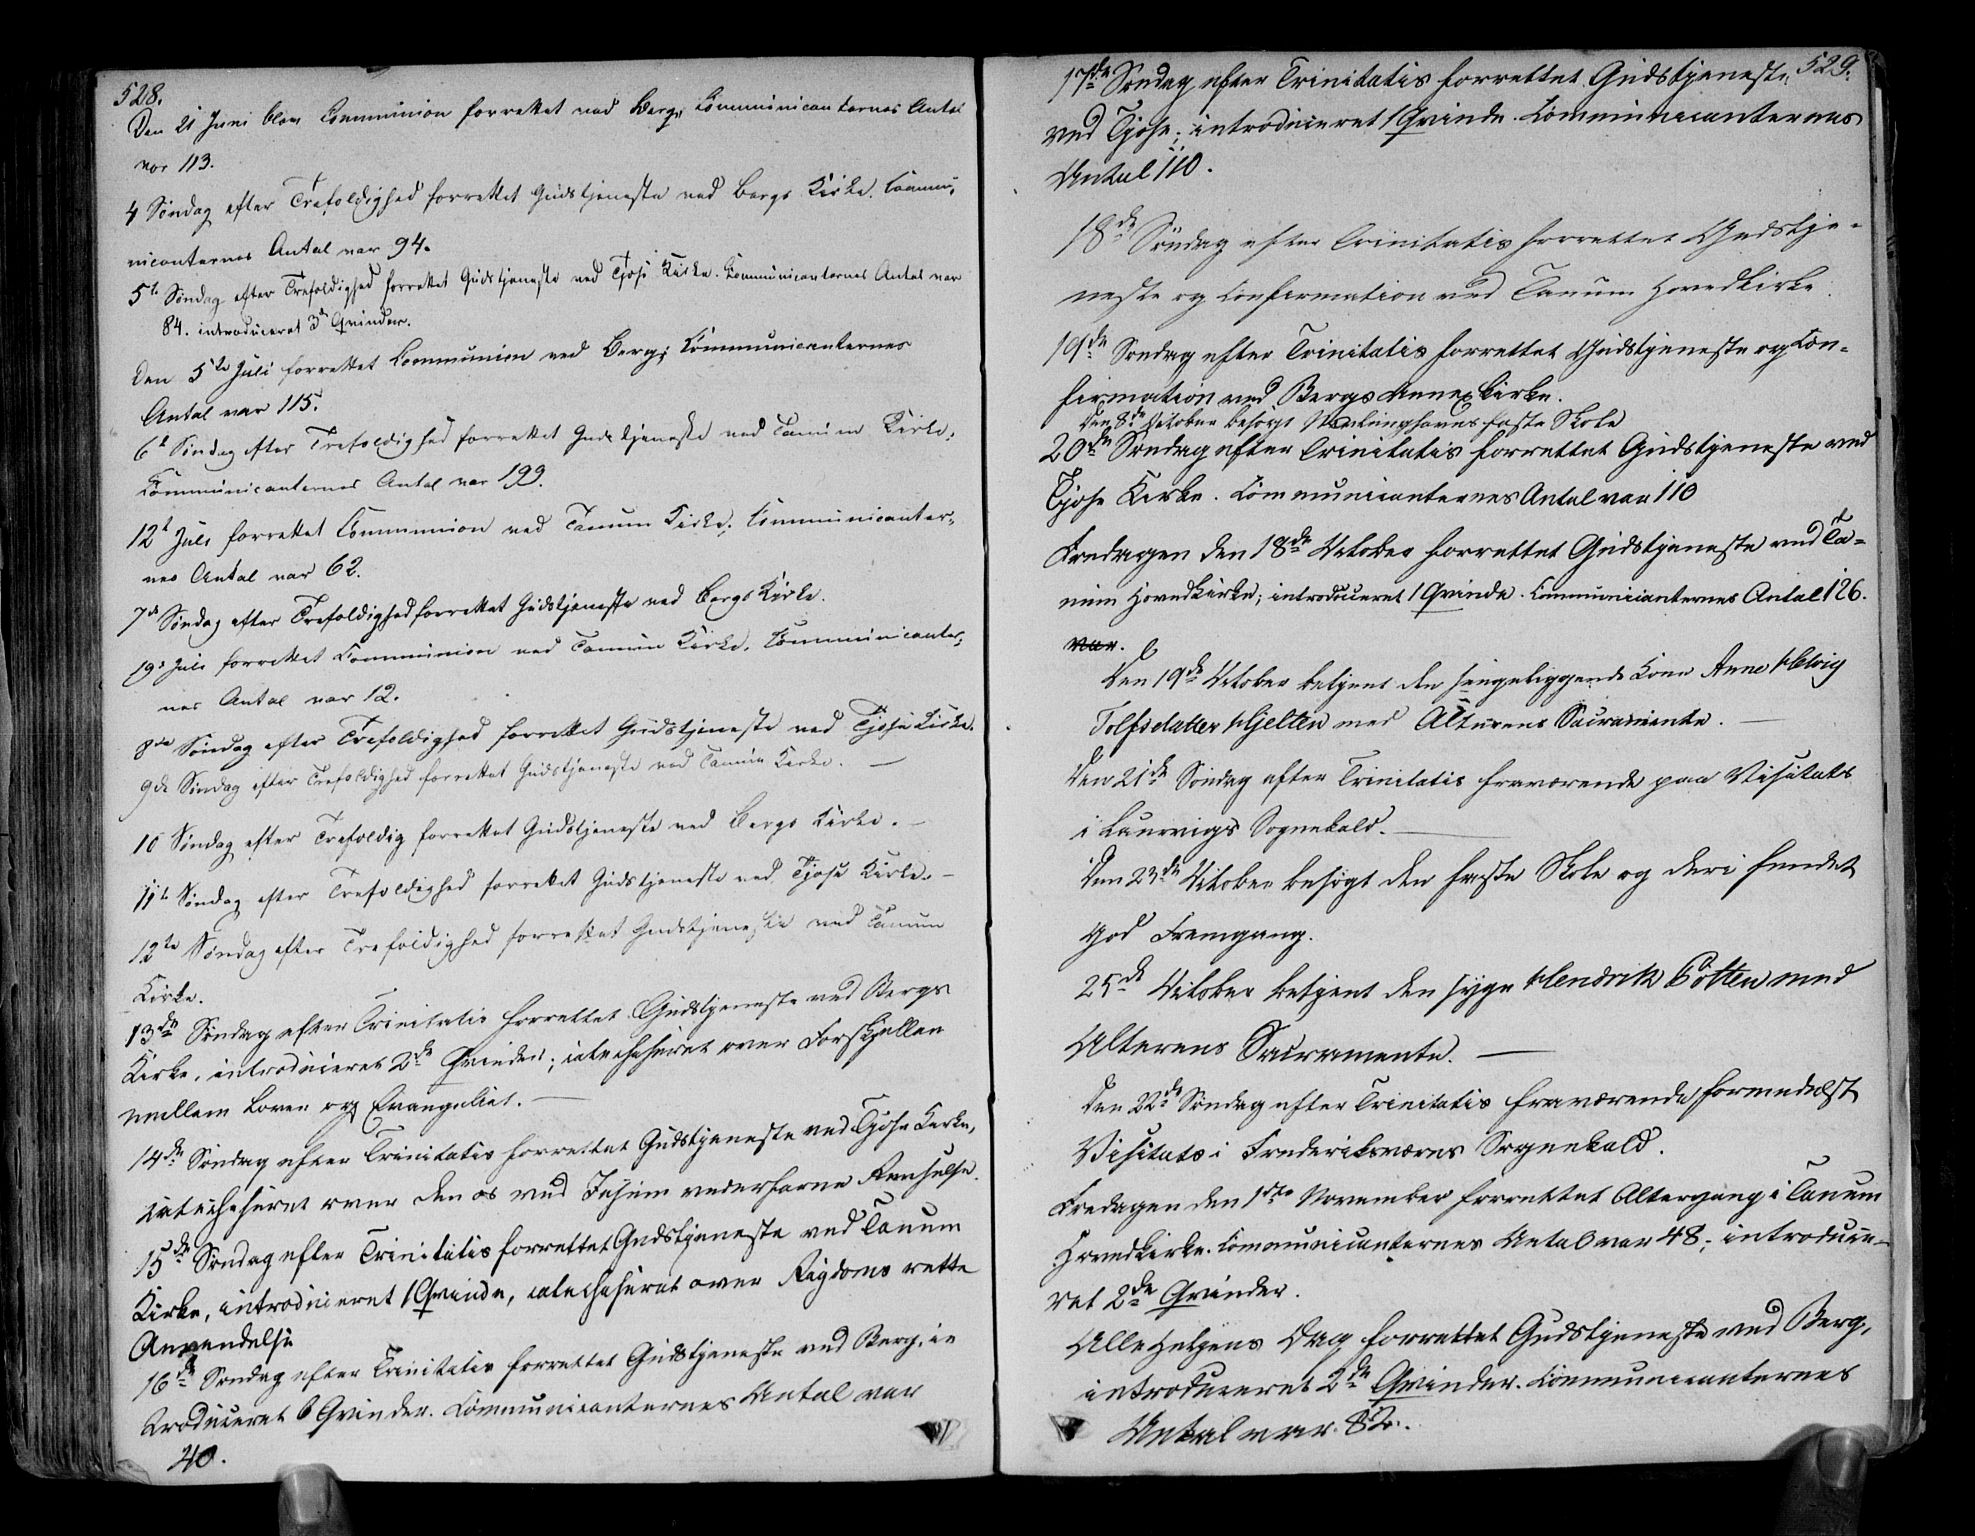 528.
Den 21 Juni blev Communion forrettet ved Berg, Communicanternes Antal
var 113.
4 Søndag efter Trefoldighed forrettet Gudstjeneste ved Bergs Kirke. Commu-
nicanternes Antal var 94.
5te Søndag efter Trefoldighed forrettet Gudstjeneste ved Tjose Kirke. Communicanternes Antal var
84. introduceret 3de Qvinder.
Den 5te Juli forrettet Communion ved Berg; Communicanternes
Antal var 115.
6t Søndag efter Trefoldighed forrettet Gudstjeneste ved Tanum Kirke.
Communicanternes Antal var 199.
12t Juli forrettet Communion ved Tanum Kirke, Communicanter-
nes Antal var 62.
7de Søndag efter Trefoldighed forrettet Gudstjeneste ved Bergs Kirke.
19de Juli forrettet Communion ved Tanum Kirke, Communicanter-
nes Antal var 12.
8de Søndag efter Trefoldighed forrettet Gudstjeneste ved Tjose Kirke.
9de Søndag efter Trefoldighed forrettet Gudstjeneste ved Tanum Kirke. —
10 Søndag efter Trefoldig forrettet Gudstjeneste ved Bergs Kirke. —
11te Søndag efter Trefoldighed forrettet Gudstjeneste ved Tjose Kirke. —
12te Søndag efter Trefoldighed forrettet Gudstjeneste ved Tanum
Kirke.
13de Søndag efter Trinitatis forrettet Gudstjeneste ved Bergs
Kirke, introduceret 2de Qvinder; catechiseret over Forskjellen
mellem Loven og Evangeliet. —
14de Søndag efter Trinitatis forrettet Gudstjeneste ved Tjose Kirke,
catechiseret over den os ved Jesum vederfarne Frelse.
15de Søndag efter Trinitatis forrettet Gudstjeneste ved Tanum
Kirke, introduceret 1 Qvinde, catechiseret over Rigdoms rette
Anvendelse
16de Søndag efter Trinitatis forrettet Gudstjeneste ved Berg, in
troduceret 6 Qvinder. Communicanternes Antal var
40.
529.
17de Søndag efter Trinitatis forrettet Gudstjeneste
ved Tjose; introduceret 1 Qvinde. Communicanternes
Antal 110.
18de Søndag efter Trinitatis forrettet Gudstje-
neste og Confirmation ved Tanum Hovedkirke.
19de Søndag efter Trinitatis forrettet Gudstjeneste og Con-
firmation ved Bergs Annex Kirke.
Den 8de October besøgt faste Skole
20de Søndag efter Trinitatis forrettet Gudstjeneste ved
Tjose Kirke. Communicanternes Antal var 110
Fredagen den 18de October forrettet Gudstjeneste ved Ta-
num Hovedkirke; introduceret 1 Qvinde. Communicanternes Antal 126.
var.
Den 19de October betjent den sengeliggende Kone Anne Helvig
Tolfsdatter Hjelten med Alterens Sacramente. —
Den 21de Søndag efter Trinitatis fraværende paa Visitats
i Laurvigs Sognekald. —
Den 23de October besøgt den faste Skole og deri fundet
god Fremgang.
25de October betjent den syge Hendrik Bøtten med
Alterens Sacramente. —
Den 22de Søndag efter Trinitatis fraværende formedelst
Visitats i Frederiksværns Sognekald.
Fredagen den 1ste November forrettet Altergang i Tanum
Hovedkirke. Communicanternes Antal var 48; introduce-
ret 2de Qvinder.
Alle Helgens Dag forrettet Gudstjeneste ved Berg,
introduceret 2de Qvinder. Communicanternes
Antal var 82.